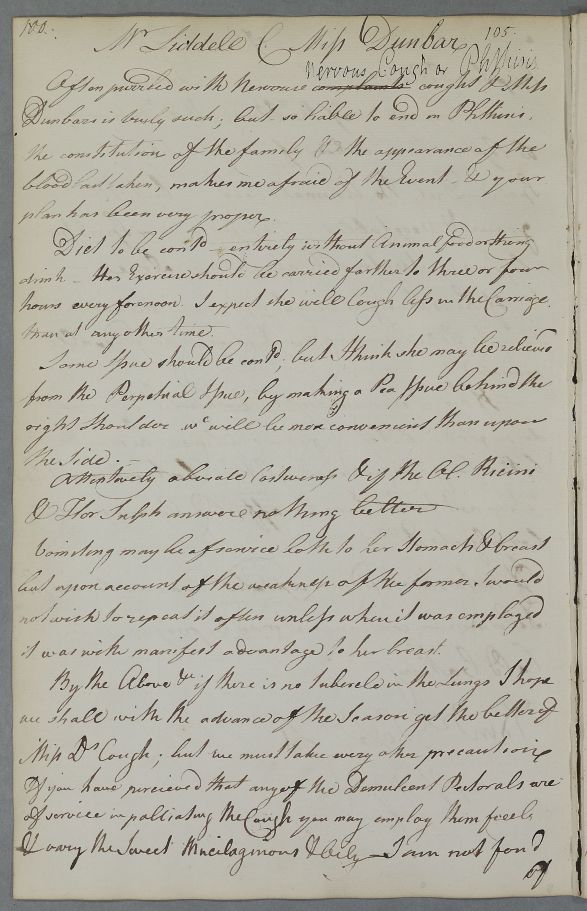 100. 105.
Mr Liddell C. Miss Dunbar
Nervous Cough or Phthisis
Often puzzled with Nervous complaints coughs & Miss
Dunbars is truly such; but so liable to end in Phthisis.
the constitution of the family & the appearance of the
blood last taken, makes me afraid of the Event & your
plan has been very proper.
Diet to be contd entirely without Animal food or strong
drink. Her Exercise should be carried farther to three or four
hours every forenoon. I expect she will Cough less in the Carriage
than at any other time.
Some Issue should be contd, but I think she may be relieved
from the Perpetual Issue, by making a Pea Issue behind the
right Shoulder wc will be more convenient than upon
the Side.
Attentively obviate Costiveness & if the Ol. Ricini
& Flor Sulph answers nothing better
Vomiting may be of service both to her Stomach & breast
but upon account of the weakness of the former I would
not wish to repeat it often unless when it was employed
it was with manifest advantage to her breast.
By the Above &c if there is no tubercle in the Lungs I hope
we shall with the advance of the Season get the better of
Miss Ds Cough; but we must take every other precaution
If you have percieved that any of the Demulcent Pectorals are
of service in palliating the Cough you may employ them freely
& vary the Sweet Mucilaginous & Oily I am not fond
of